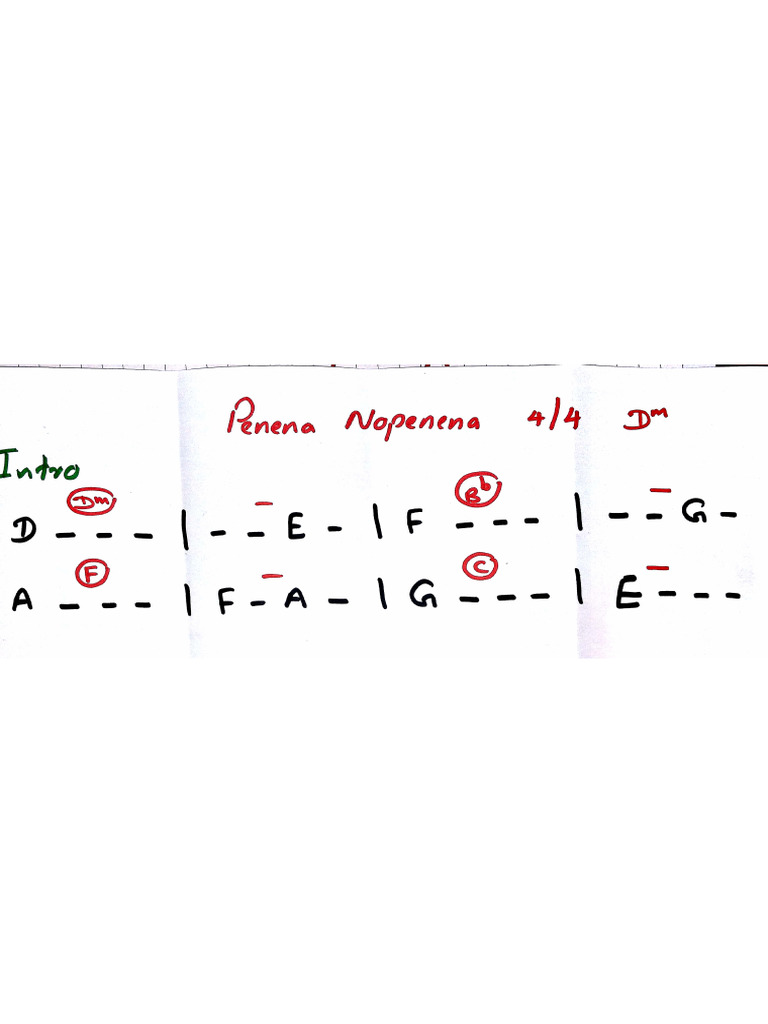 Penena Nopenena 4/4 Dm
Intro
Dm – Bb –
D - - - | - - E - | F - - - | - - G -
F – C –
A - - - | F - A - | G - - - | E - - -